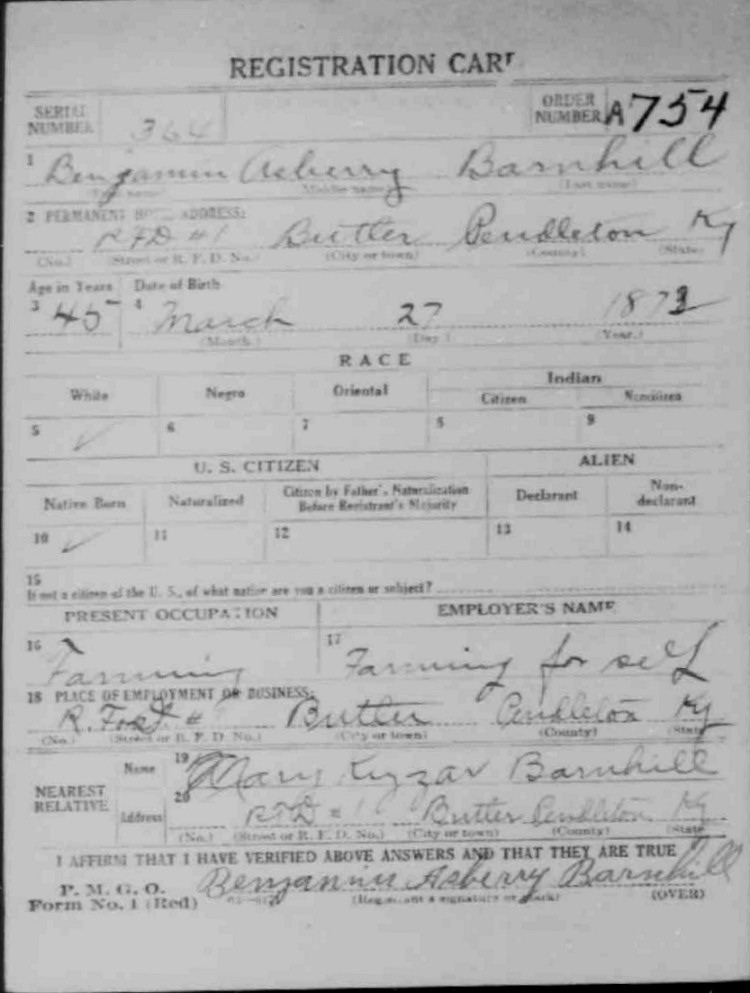 REGISTRATION CAR
SERIAL NUMBER 364 ORDER NUMBER A754
1 Benjamin Asberry Barnhill
(First name) (Middle name) (Last name)
2 PERMANENT HOME ADDRESS:
RFD #1 Butler Pendleton Ky
(No.) (Street or R. F. D. No.) (City or town) (County) (State)
Age in Years Date of Birth
3 45 4 March 27 1873
(Month.) (Day.) (Year.)
RACE
White Negro Oriental Indian
Citizen Noncitizen
5 ✓ 6 7 8 9
U. S. CITIZEN ALIEN
Native Born Naturalized Citizen by Father's Naturalization Before Registrant's Majority Declarant Non-declarant
10 ✓ 11 12 13 14
15
If not a citizen of the U. S., of what nation are you a citizen or subject?
PRESENT OCCUPATION EMPLOYER'S NAME
16 Farming 17 Farming for self
18 PLACE OF EMPLOYMENT OR BUSINESS:
Butler Pendleton Ky
(No.) (Street or R. F. D. No.) (City or town) (County) (State)
NEAREST RELATIVE
Name 19 Mary Kyzar Barnhill
Address 20 RFD #1 Butler Pendleton Ky
(No.) (Street or R. F. D. No.) (City or town) (County) (State
I AFFIRM THAT I HAVE VERIFIED ABOVE ANSWERS AND THAT THEY ARE TRUE
P. M. G. O.
Form No. 1 (Red) Benjamin Asberry Barnhill
(Registrant's signature or mark) (OVER)